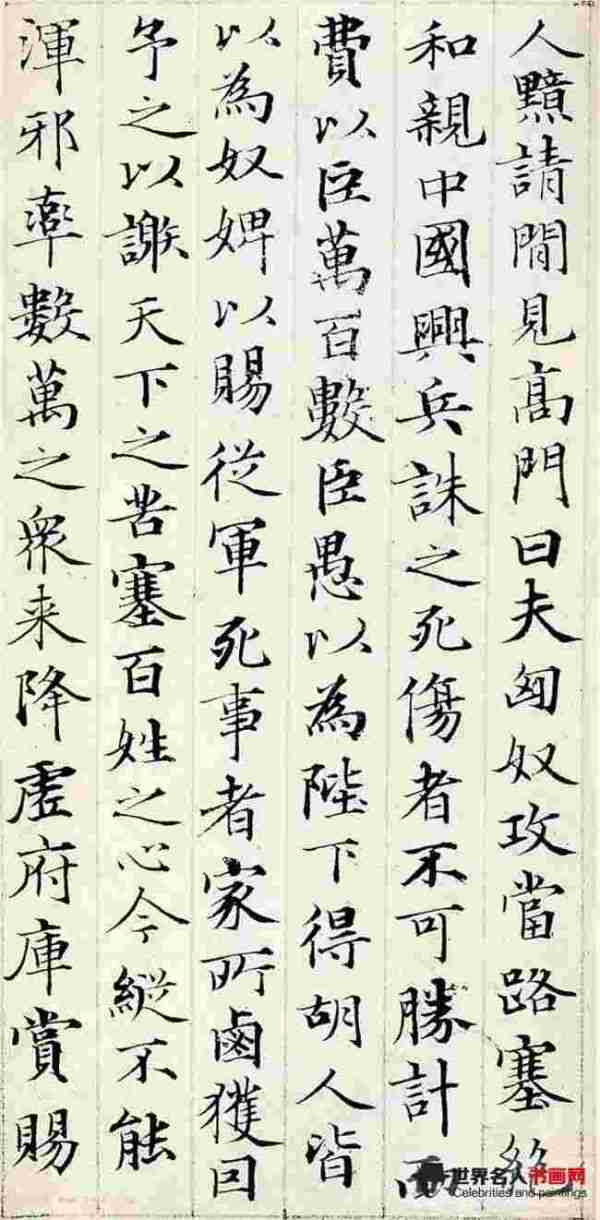 人黯請閒見髙門曰夫匈奴攻當路塞絶
和親中國興兵誅之死傷者不可勝計而
費以臣萬百數臣愚以為陛下得胡人皆
以為奴婢以賜從軍死事者家所鹵獲囙
予之以謝天下之苦塞百姓之心今縱不能
渾邪率數萬之衆来降虚府庫賞賜
世界名人书画网
Celebrities and paintings